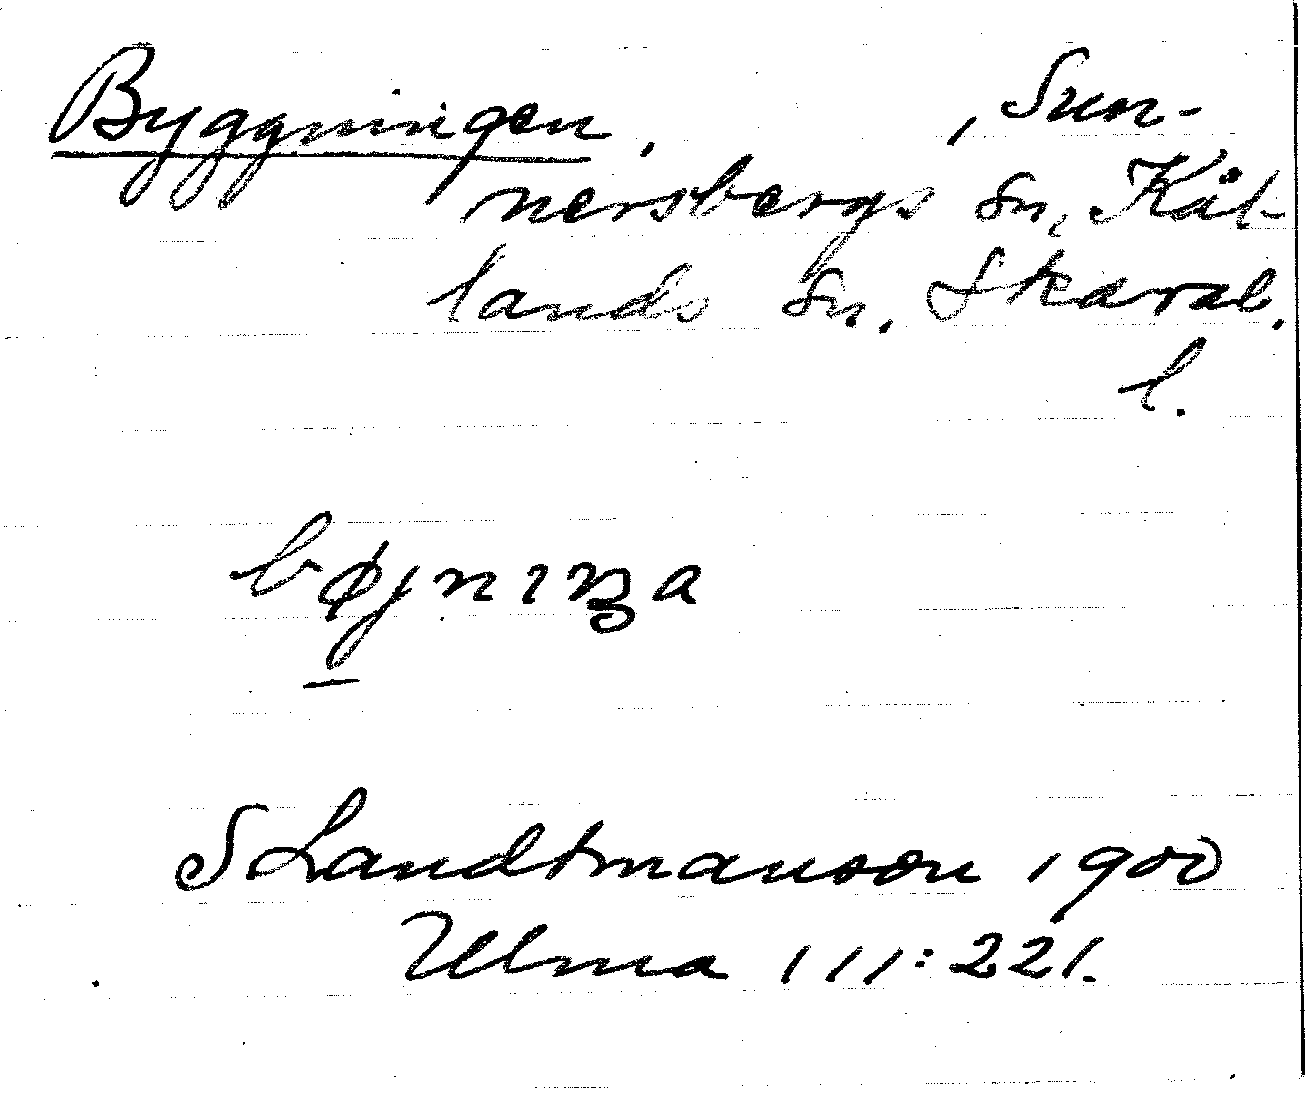 Byggningen, , Sun-
nersbergs sn, Kål-
lands sn. Skarab.
l.
bøjnıŋa
S Landtmanson 1900
Ulma 111:221.